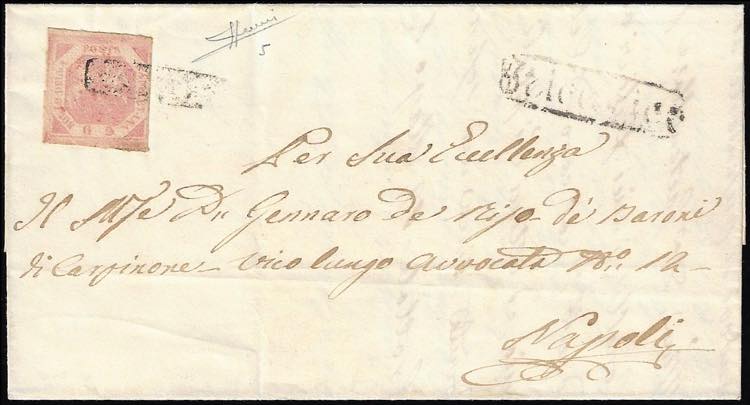 POSTA
G 2
5
Per Sua Eccellenza
Il Mse Dn Gennaro de Rijo de' Baroni
di Carpinone - Vico lungo Avvocata No. 12 -
Napoli